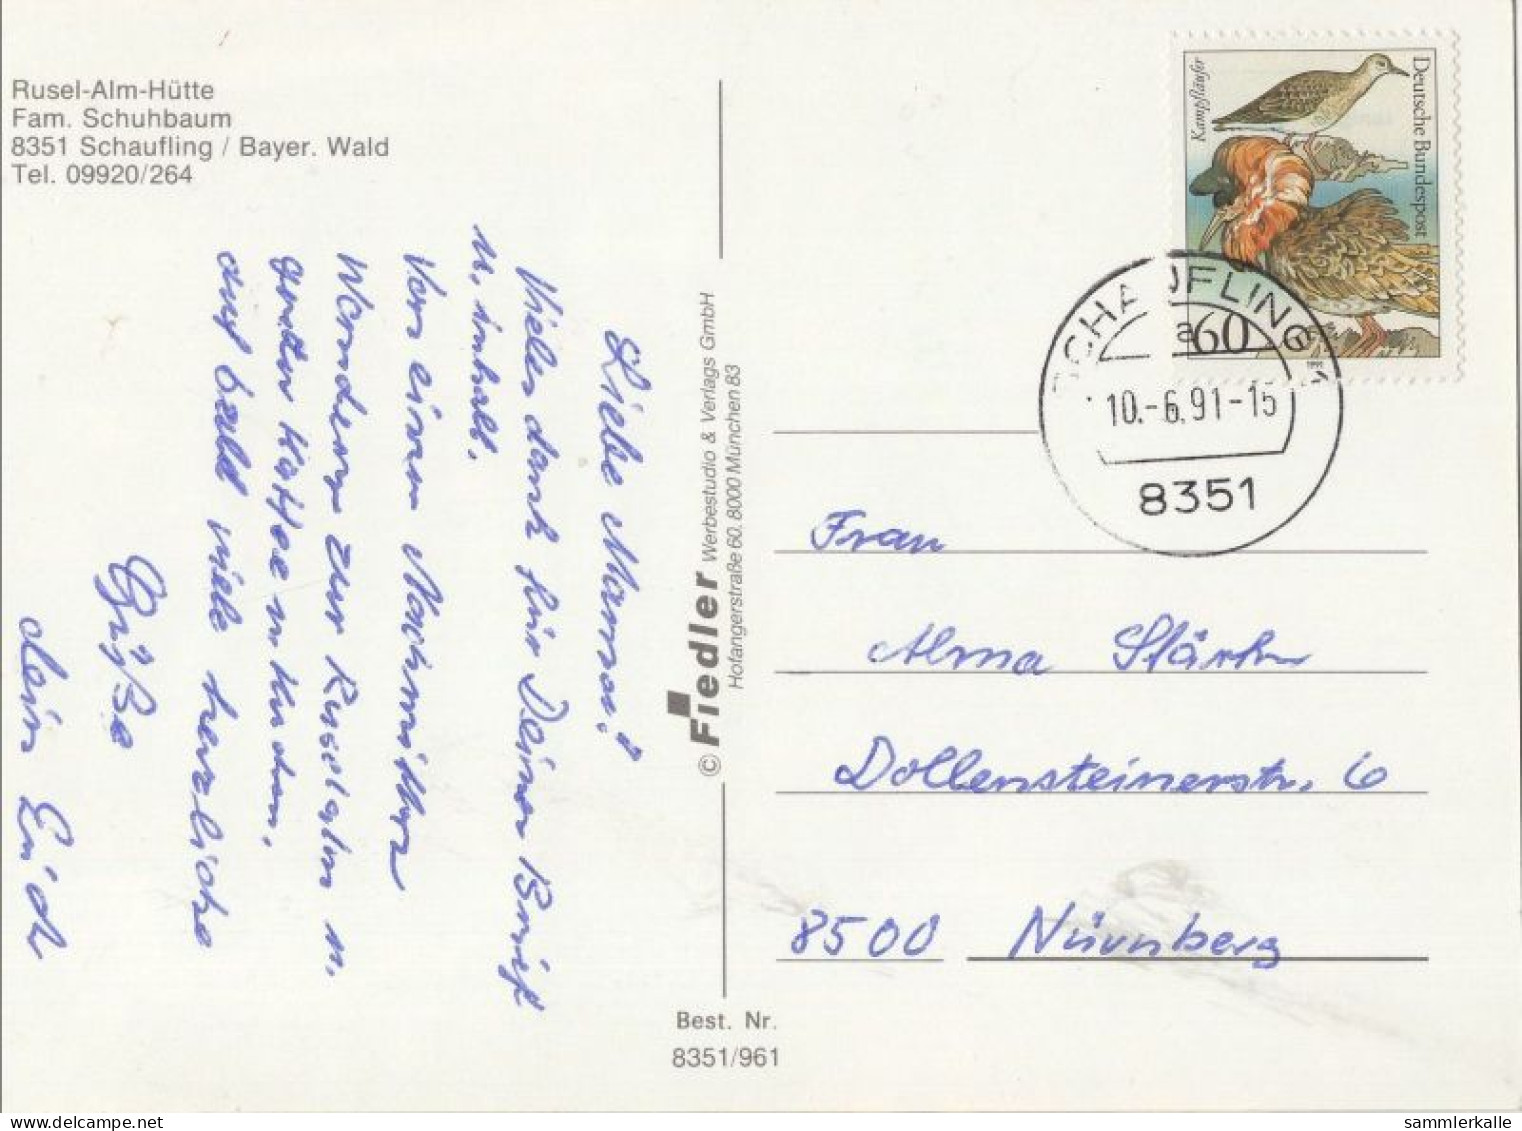 Rusel-Alm-Hütte
Fam. Schuhbaum
8351 Schaufling / Bayer. Wald
Tel. 09920/264
Liebe Mama!
Vielen dank für Deinen Brief
u. inhalt.
Von einer Nachmittags
Wanderung zur Ruselalm u.
guten Kaffee u. Kuchen.
auf bald viele herzliche
Grüße
dein Erich
© Fiedler Werbestudio & Verlags GmbH
Hofangerstraße 60, 8000 München 83
Best. Nr.
8351/961
Kampfläufer
Deutsche Bundespost
60
1991
SCHAUFLING
a
10.-6.91-15
8351
Frau
Alma Stärk
Dollensteinerstr. 6
8500 Nürnberg
sammlerkalle